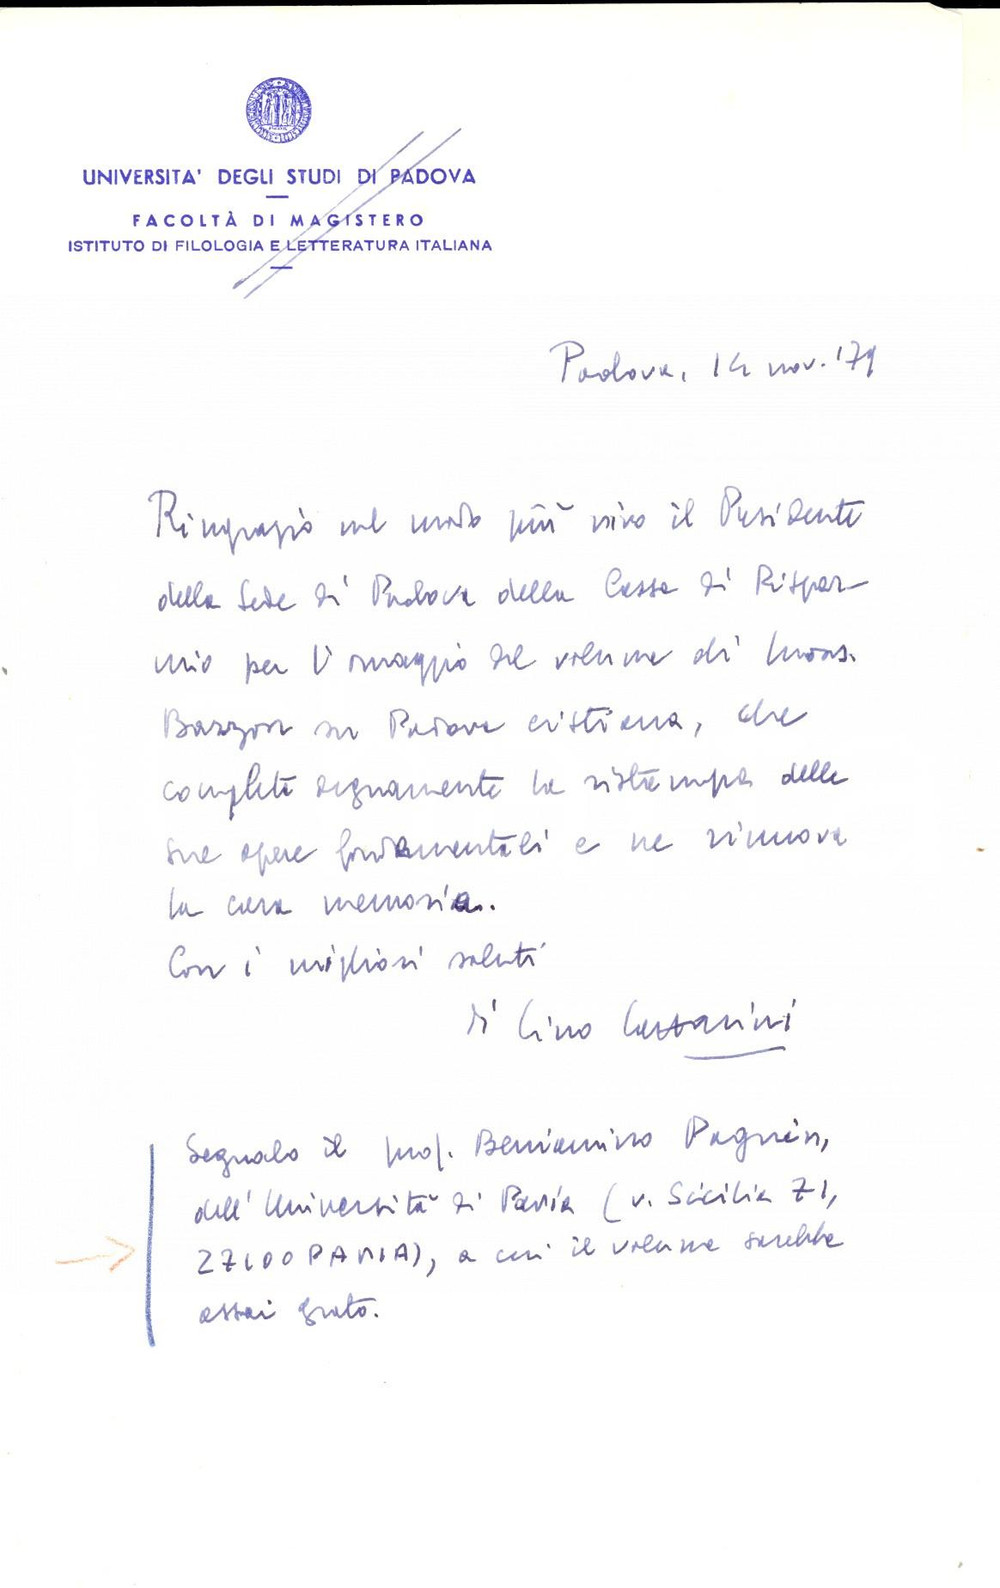 UNIVERSITA' DEGLI STUDI DI PADOVA
FACOLTÀ DI MAGISTERO
ISTITUTO DI FILOLOGIA E LETTERATURA ITALIANA
Padova, 14 nov. '79
Ringrazio nel modo più vivo il Presidente
della Sede di Padova della Cassa di Rispar-
mio per l'omaggio del volume di Mons.
Barzon su Padova cristiana, che
completa degnamente la ristampa delle
sue opere fondamentali e ne rinnova
la cara memoria.
Con i migliori saluti
di Lino Lazzarini
Segnalo il prof. Beniamino Pagnin,
dell'Università di Pavia (v. Sicilia 71,
27100 PAVIA), a cui il volume sarebbe
assai grato.